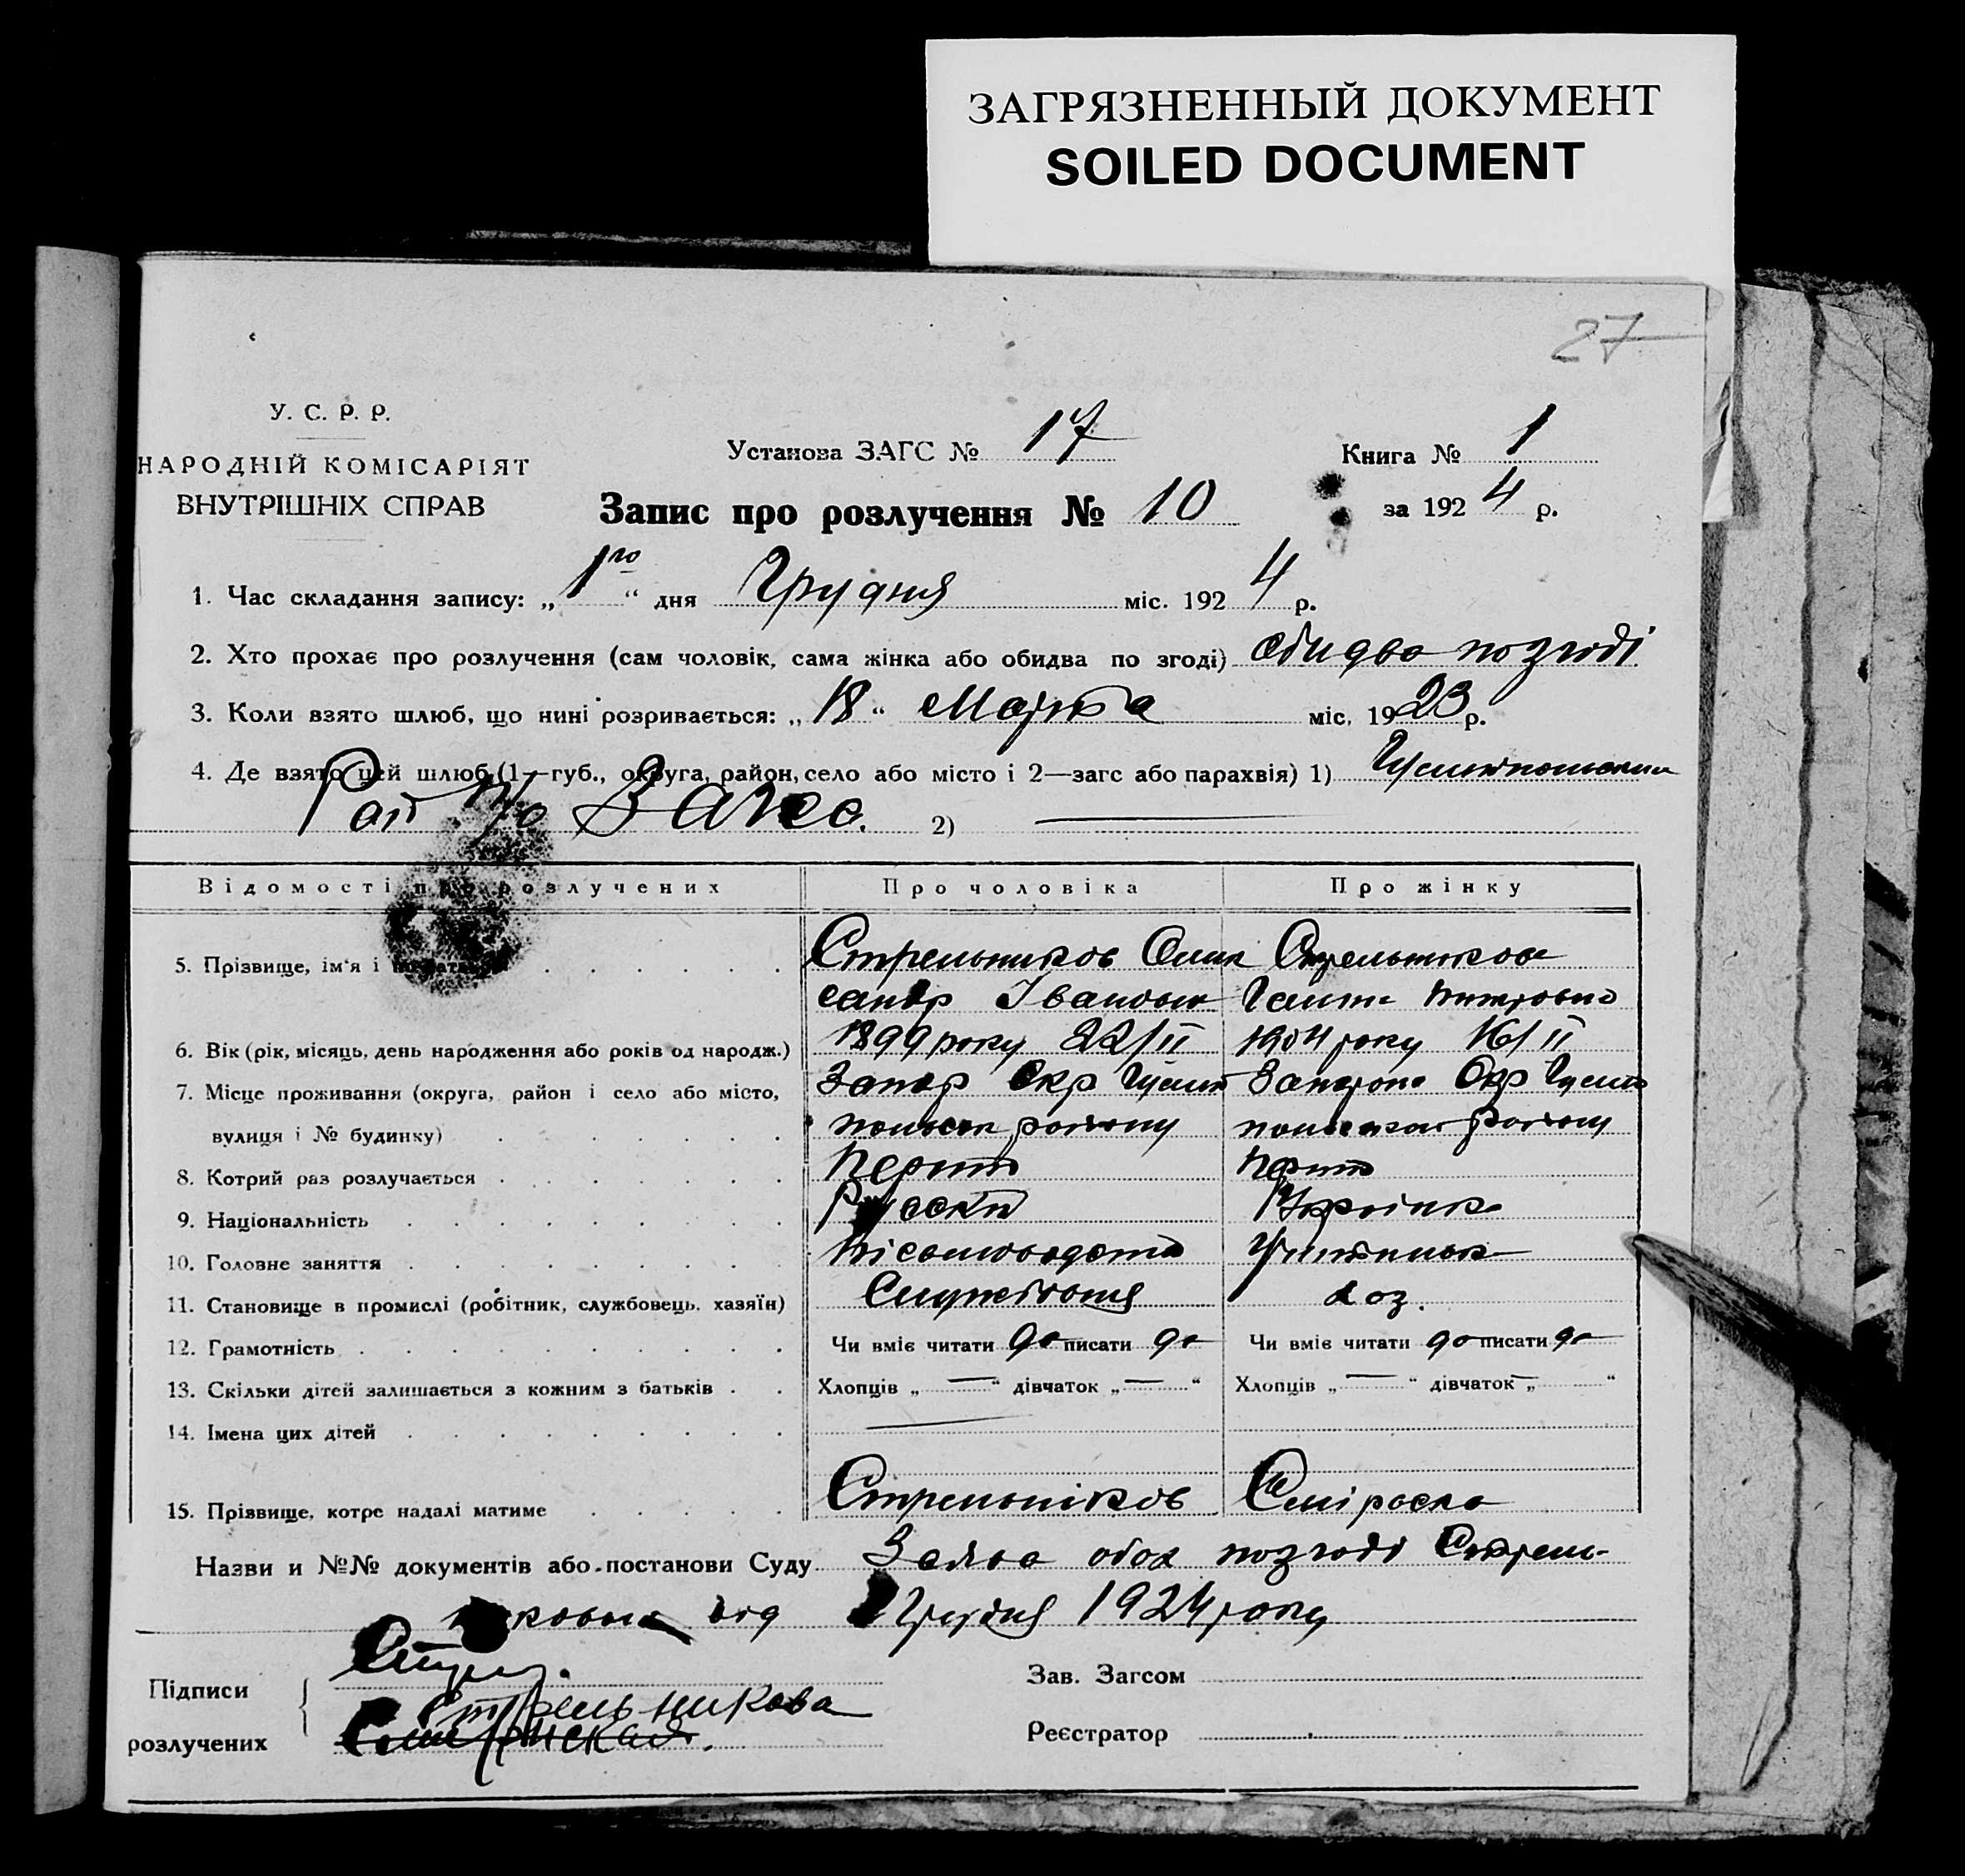 ЗАГРЯЗНЕННЫЙ ДОКУМЕНТ
SOILED DOCUMENT
27
У. С. Р. Р.
НАРОДНІЙ КОМІСАРІЯТ
ВНУТРІШНІХ СПРАВ
Установа ЗАГС № 17
Книга № 1
за 1924 р.
Запис про розлучення № 10
1. Час складання запису: „1го“ дня Грудня міс. 1924 р.
2. Хто прохає про розлучення (сам чоловік, сама жінка або обидва по згоді) обидва по згоді
3. Коли взято шлюб, що нині розривається: „18“ Марта міс. 1923 р.
4. Де взято цей шлюб (1—губ., округа, район, село або місто і 2—загс або парахвія) 1)
Рай 2)
Відомості про розлучених Про чоловіка Про жінку
5. Прізвище, ім'я і Стрельников Олек Стрельникова
сандр Іванович
6. Вік (рік, місяць, день народження або років од народж.) 1899 року 22/II 1904 року 16/II
7. Місце проживання (округа, район і село або місто, Запор Окр Окр
вулиця і № будинку) району району
8. Котрий раз розлучається
9. Національність Русский Українка
10. Головне заняття
11. Становище в промислі (робітник, службовець, хазяїн)
12. Грамотність Чи вміє читати да писати да Чи вміє читати да писати да
13. Скільки дітей залишається з кожним з батьків Хлопців „—“ дівчаток „—“ Хлопців „—“ дівчаток „—“
14. Імена цих дітей
15. Прізвище, котре надалі матиме Стрельніков
Назви и №№ документів або постанови Суду Заява обох по згоді Стрель-
від Грудня 1924 року
Підписи
розлучених
Стрельникова
Зав. Загсом
Реєстратор